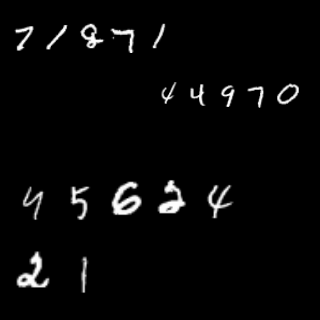 71871
44970
45624
21